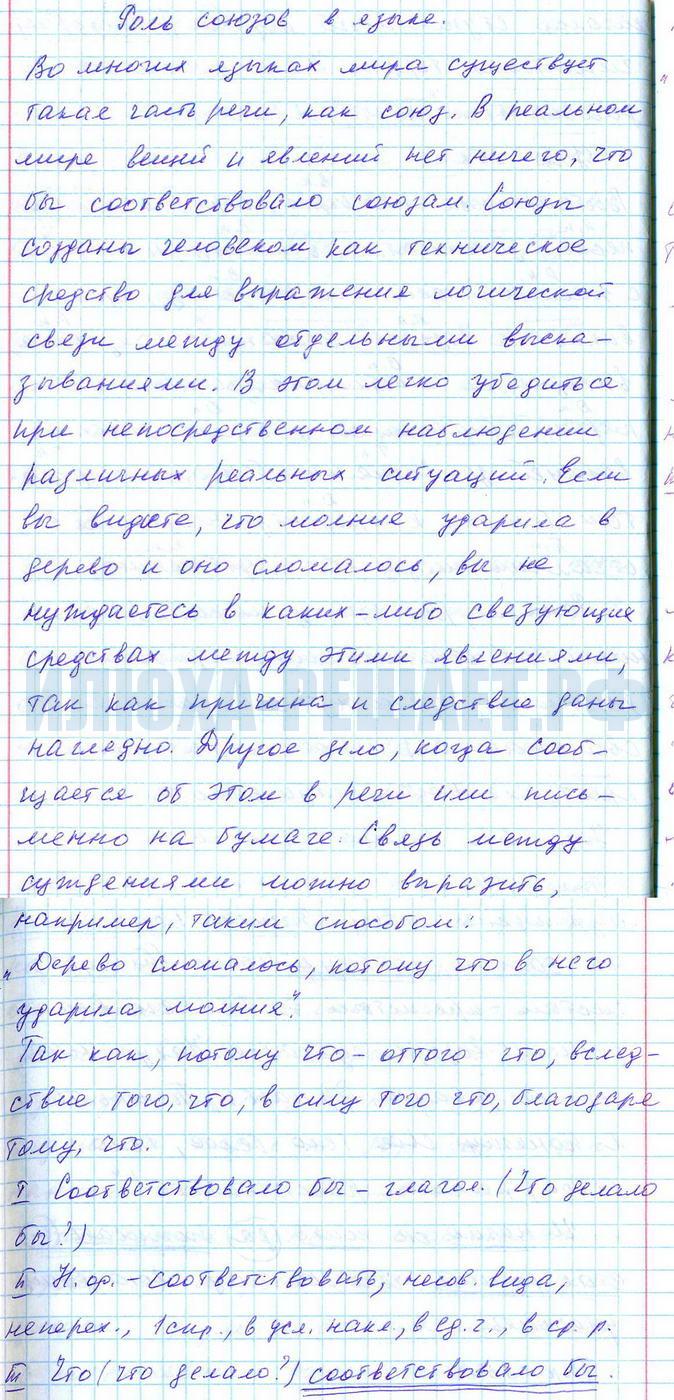 Роль союзов в языке.
Во многих языках мира существует
такая часть речи, как союз. В реальном
мире вещей и явлений нет ничего, что
бы соответствовало союзам. Союзы
созданы человеком как техническое
средство для выражения логической
связи между отдельными выска-
зываниями. В этом легко убедиться
при непосредственном наблюдении
различных реальных ситуаций. Если
вы видите, что молния ударила в
дерево и оно сломалось, вы не
нуждаетесь в каких-либо связующих
средствах между этими явлениями,
так как причина и следствие даны
КЛЮХА-РЕШАЕТ.РФ
наглядно. Другое дело, когда сооб-
щается об этом в речи или пись-
менно на бумаге. Связь между
суждениями можно выразить,
например, таким способом:
„Дерево сломалось, потому что в него
ударила молния".
Так как, потому что - оттого что, вслед-
ствие того, что, в силу того что, благодаря
тому, что.
I Соответствовало бы - глагол. (Что делало
бы?)
II Н.ф. - соответствовать, несов. вида,
неперех., 1 спр., в усл. накл., в ед. ч., в ср. р.
III Что (что делало?) соответствовало бы.